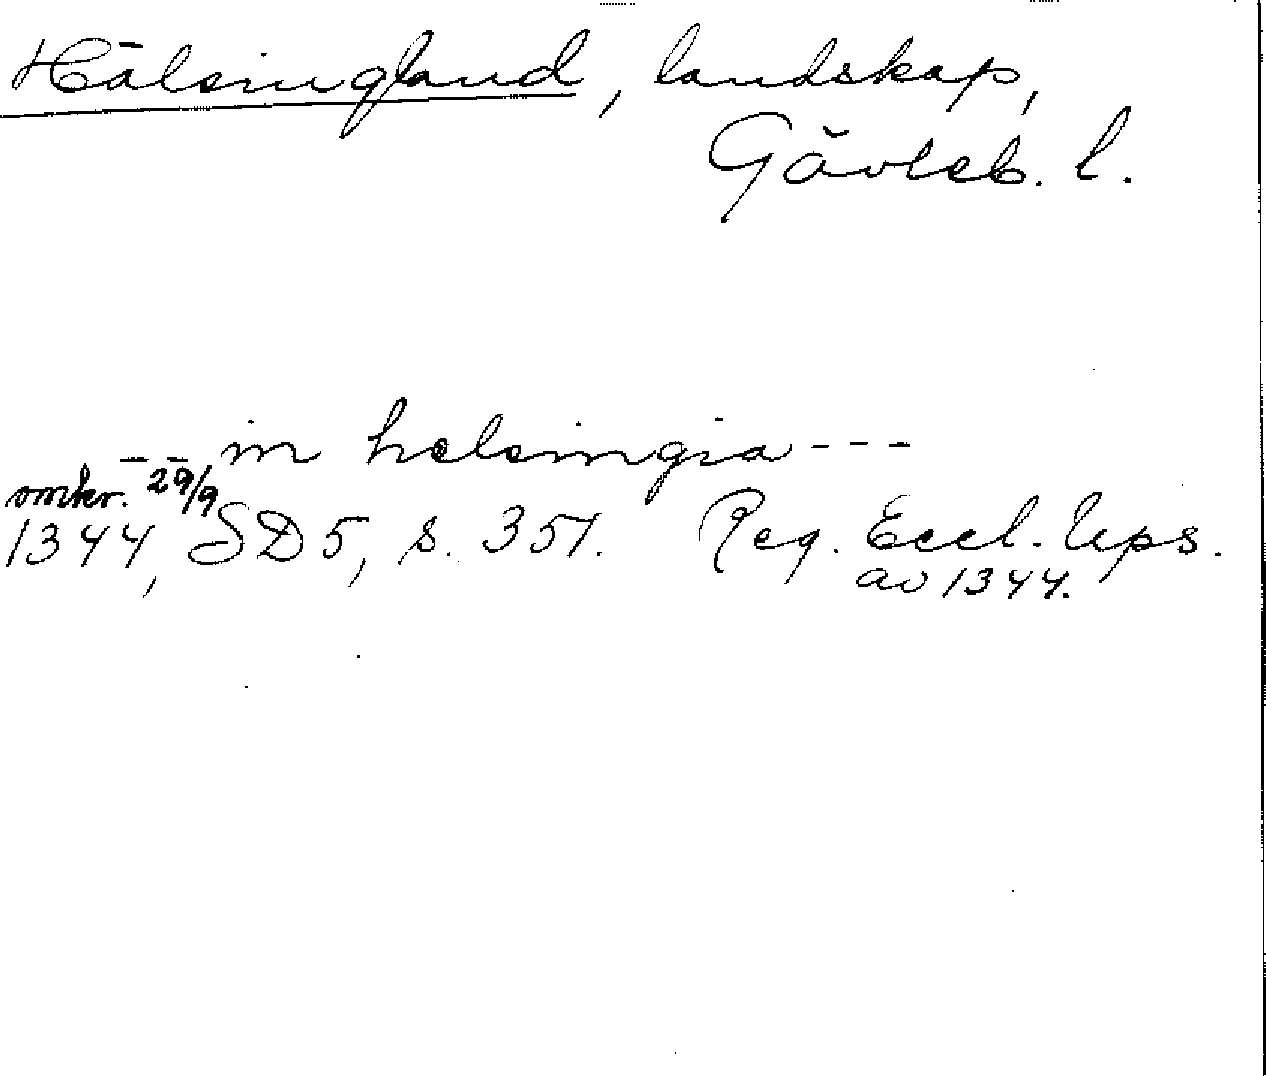 Hälsingland, landskap,
Gävleb. l.
-- in helsingia ---
omkr. 29/9
1344, SD 5, s. 351. Reg. Eccl. Ups.
av 1344.